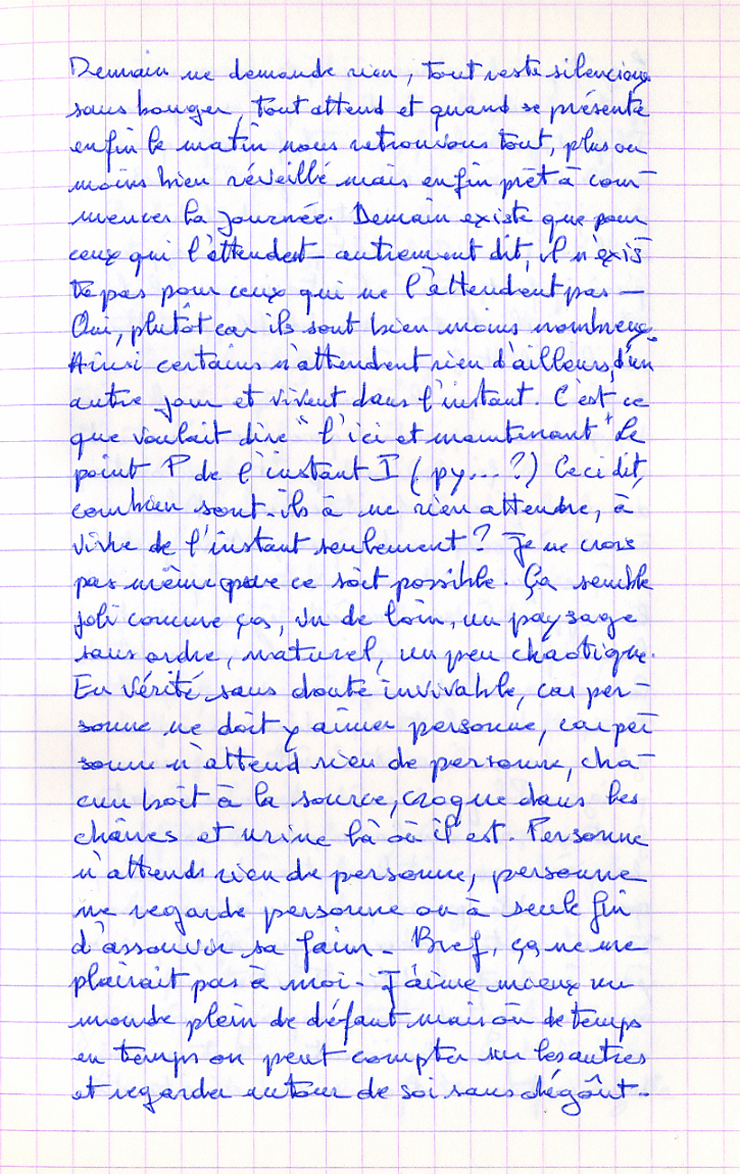 Demain ne demande rien, tout reste silencieux
sans bouger, tout attend et quand se présente
enfin le matin nous retrouvons tout, plus ou
moins bien réveillé mais enfin prêt à com-
mencer la journée. Demain existe que pour
ceux qui l'attendent autrement dit, il n'exis-
te pas pour ceux qui ne l'attendent pas —
Oui, plutôt car ils sont bien moins nombreux.
Ainsi certains n'attendent rien d'ailleurs, d'un
autre jour et vivent dans l'instant. C'est ce
que voulait dire "l'ici et maintenant" Le
point P de l'instant I (py...?) Ceci dit,
combien sont-ils à ne rien attendre, à
vivre de l'instant seulement ? Je ne crois
pas même que ce soit possible. Ça semble
joli comme ça, vu de loin, un paysage
sans ordre, naturel, un peu chaotique.
En vérité sans doute invivable, car per-
sonne ne doit y aimer personne, car per-
sonne n'attend rien de personne, cha-
cun boit à la source, croque dans les
chaires et urine là où il est. Personne
n'attends rien de personne, personne
ne regarde personne ou à seule fin
d'assouvir sa faim - Bref, ça ne me
plairait pas à moi - J'aime mieux un
monde plein de défaut mais où de temps
en temps on peut compter sur les autres
et regarder autour de soi sans dégoût -